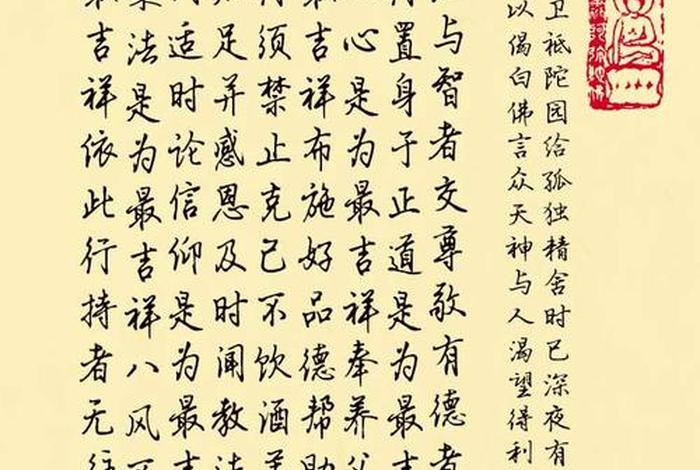 卫祇陀园给孤独精舍时已深夜有
以偈白佛言众天神与人渴望得利
与智者交尊敬有德者
置身于正道是为最吉
心是为最吉祥奉养父
吉祥布施好品德帮助
须禁止克己不饮酒美
足并感恩及时闻教法
适时论信仰是为最吉
法是为最吉祥八风不
吉祥依此行持者无往